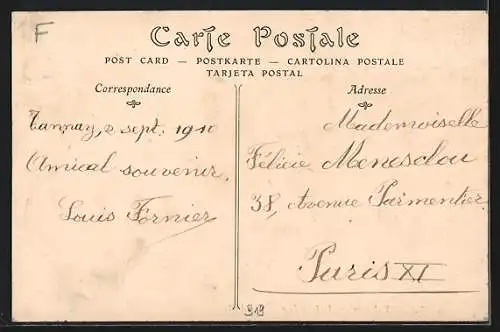 F
Carte Postale
POST CARD — POSTKARTE — CARTOLINA POSTALE
TARJETA POSTAL
Correspondance
Tannay, 2 sept. 1910
Amical souvenir.
Louis Fornier
Adresse
Mademoiselle
Félicie Menesclou
38, Avenue Parmentier
Paris XI
919